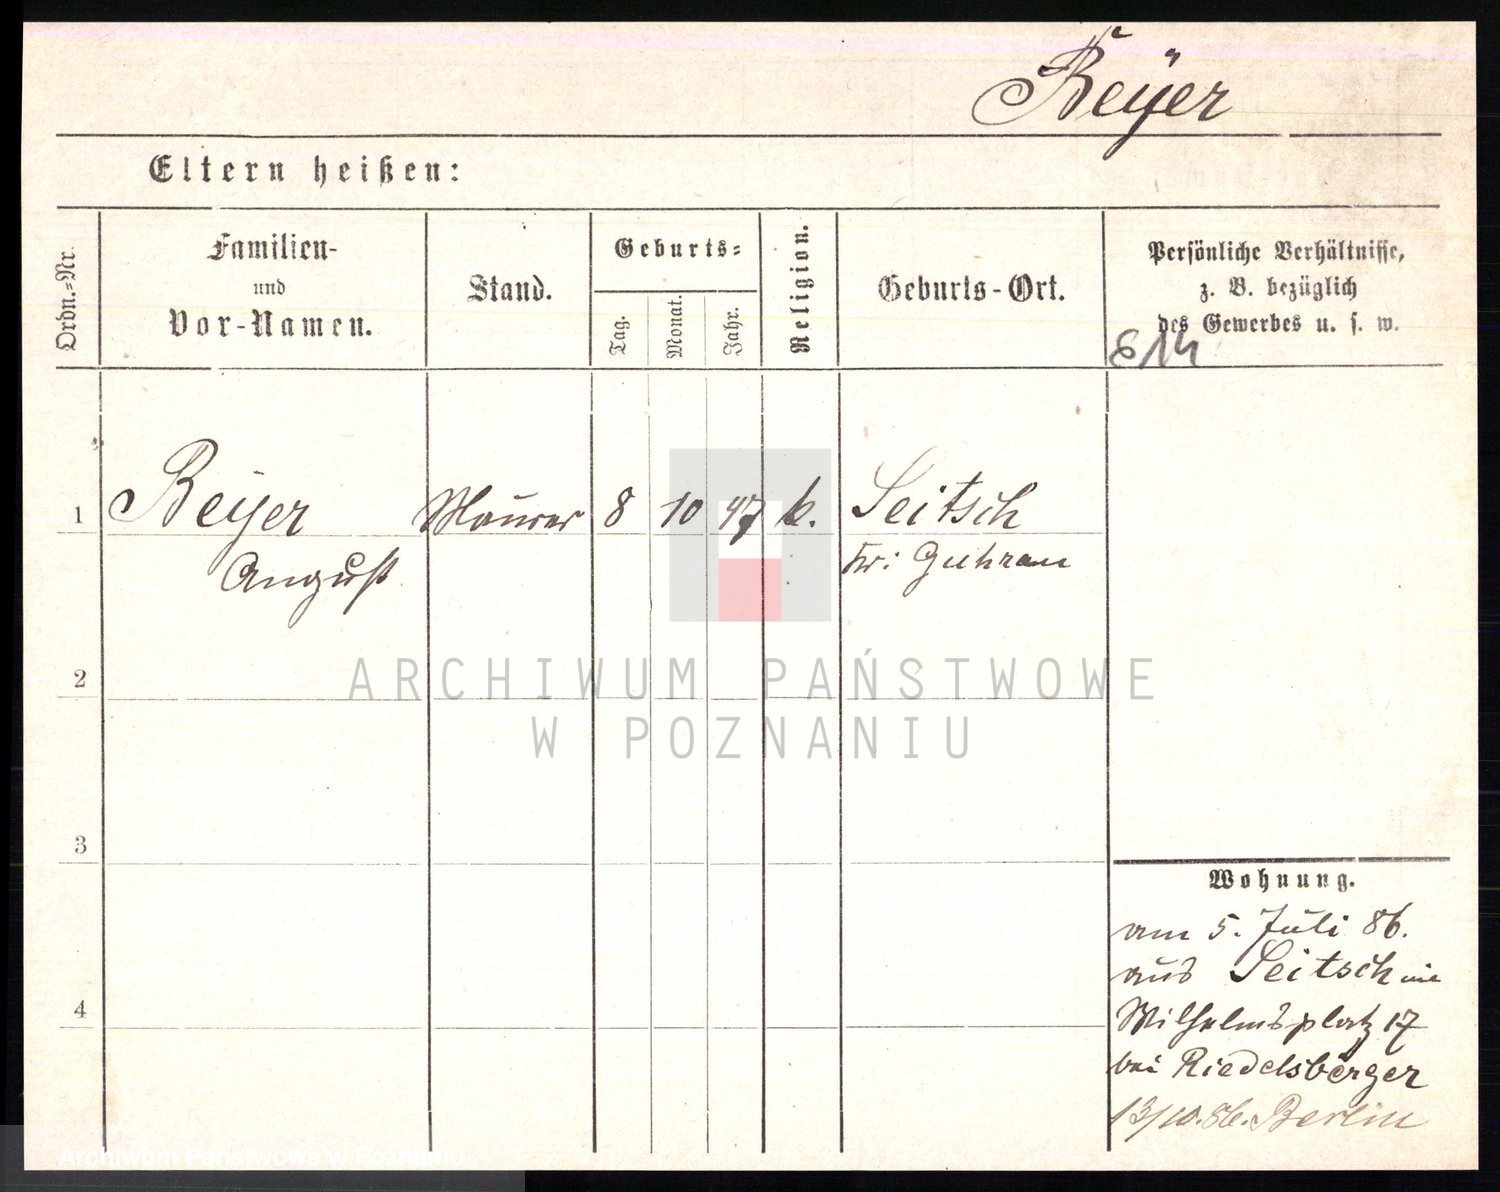 Beÿer
Eltern heißen:
Ordn.-Nr.
Familien-
und
Vor-Namen.
Stand.
Geburts-
Tag.
Monat.
Jahr.
Religion.
Geburts-Ort.
Persönliche Verhältnisse,
z. B. bezüglich
des Gewerbes u. s. w.
614
1 Beyer Maurer 8 10 47 k. Seitsch
August Kr: Guhrau
2
3
4
ARCHIWUM PAŃSTWOWE
W POZNANIU
Wohnung.
am 5. Juli 86.
aus Seitsch
Wilhelmsplatz 17
bei Riedelsberger
13/10.86. Berlin
Archiwum Państwowe w Poznaniu